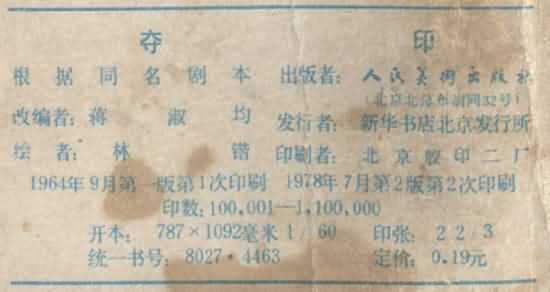 夺 印
根据同名剧本 出版者: 人民美术出版社
(北京北总布胡同32号)
改编者: 蒋淑均 发行者: 新华书店北京发行所
绘者: 林锴 印刷者: 北京胶印二厂
1964年9月第一版第1次印刷 1978年7月第2版第2次印刷
印数: 100,001—1,100,000
开本: 787×1092毫米 1/60 印张: 2 2/3
统一书号: 8027·4463 定价: 0.19元